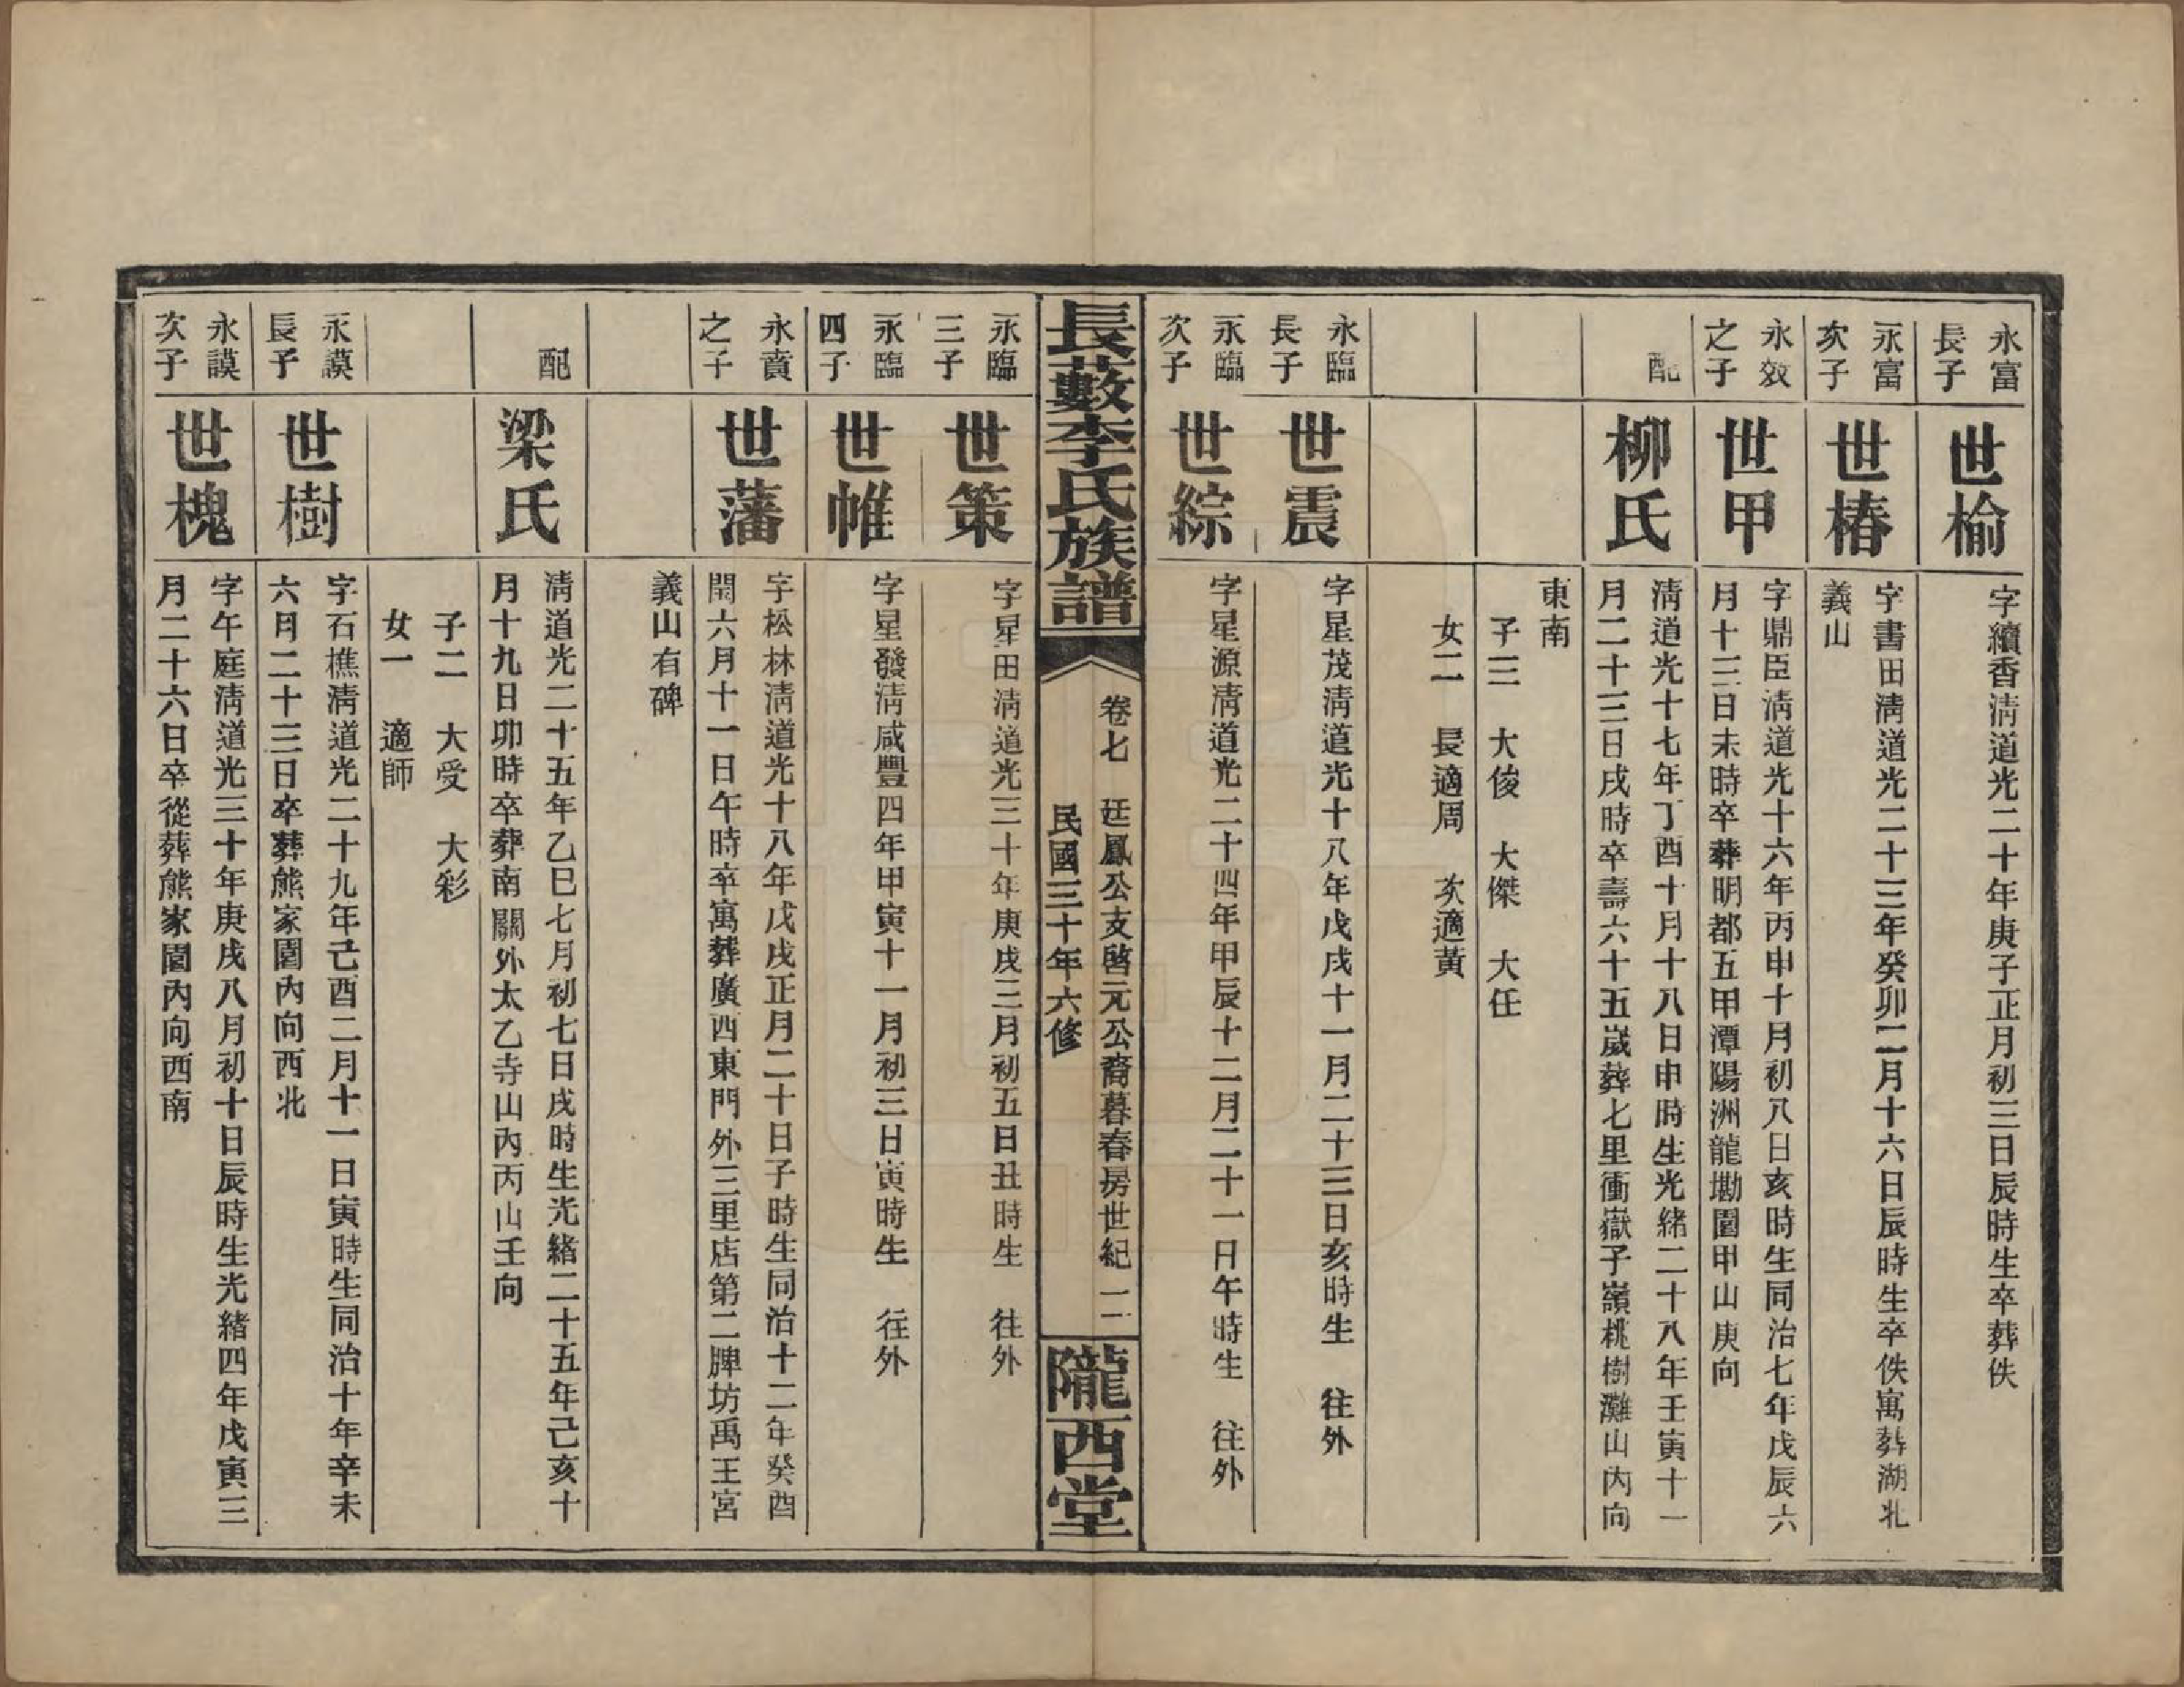 永富
長子
世榆
字續香淸道光二十年庚子正月初三日辰時生卒葬佚
永富
次子
世椿
字書田淸道光二十三年癸卯二月十六日辰時生卒佚寓葬湖北
義山
永效
之子
世甲
字鼎臣淸道光十六年丙申十月初八日亥時生同治七年戊辰六
月十三日未時卒葬明都五甲潭陽洲龍墈園甲山庚向
配
柳氏
淸道光十七年丁酉十月十八日申時生光緖二十八年壬寅十一
月二十三日戌時卒壽六十五歲葬七里衝嶽子嶺桃樹灘山內向
東南
子三 大俊 大傑 大任
女二 長適周 次適黃
永臨
長子
世震
字星茂淸道光十八年戊戌十一月二十三日亥時生 往外
永臨
次子
世綜
字星源淸道光二十四年甲辰十二月二十一日午時生 往外
長藪李氏族譜
卷七 廷鳳公支啓元公裔暮春房世紀 二
民國三十年六修
隴西堂
永臨
三子
世策
字星田淸道光三十年庚戌三月初五日丑時生 往外
永臨
四子
世帷
字星發淸咸豐四年甲寅十一月初三日寅時生 往外
永賚
之子
世藩
字松林淸道光十八年戊戌正月二十日子時生同治十二年癸酉
閏六月十一日午時卒寓葬廣西東門外三里店第二牌坊禹王宮
義山有碑
配
梁氏
淸道光二十五年乙巳七月初七日戌時生光緖二十五年己亥十
月十九日卯時卒葬南關外太乙寺山內丙山壬向
子二 大受 大彩
女一 適師
永謨
長子
世樹
字石樵淸道光二十九年己酉二月十一日寅時生同治十年辛未
六月二十三日卒葬熊家園內向西北
永謨
次子
世槐
字午庭淸道光三十年庚戌八月初十日辰時生光緖四年戊寅三
月二十六日卒從葬熊家園內向西南